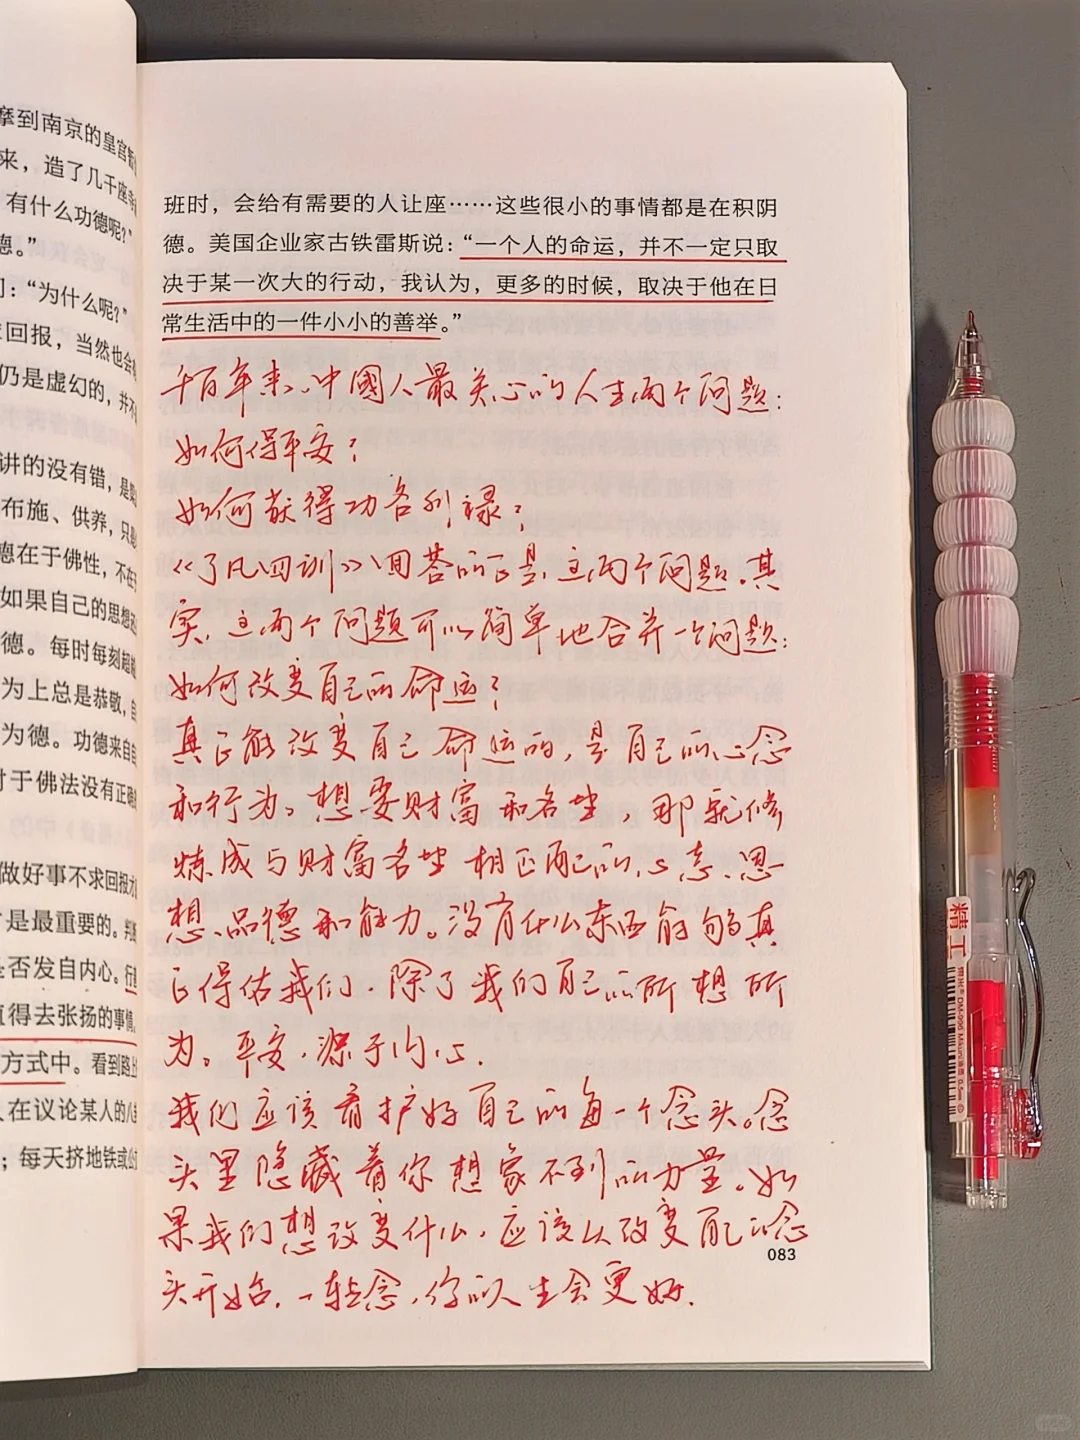 摩到南京的皇宫
来，造了几千座寺
有什么功德呢？”
德。”
们：“为什么呢？”
回报，当然也会
仍是虚幻的，并不
讲的没有错，是
布施、供养，只
德在于佛性，不在
如果自己的思想还
德。每时每刻超
为上总是恭敬，自
为德。功德来自自
对于佛法没有正确
做好事不求回报才
是最重要的。判断
是否发自内心。行
值得去张扬的事情
方式中。看到路上
人在议论某人的八
；每天挤地铁或公
班时，会给有需要的人让座……这些很小的事情都是在积阴
德。美国企业家古铁雷斯说：“一个人的命运，并不一定只取
决于某一次大的行动，我认为，更多的时候，取决于他在日
常生活中的一件小小的善举。”
千百年来、中國人最关心的人生两个问题：
如何保平安？
如何获得功名利禄？
《了凡四训》回答的正是这两个问题。其
实，这两个问题可以简单地合并一个问题：
如何改变自己的命运？
真正能改变自己命运的，是自己的心念
和行为。想要财富和名望，那就修
炼成与财富名望相匹配的心态、思
想、品德和能力。没有什么东西能够真
正保佑我们，除了我们自己的所想所
为。平安，源于内心.
我们应该看护好自己的每一个念头。念
头里隐藏着你想象不到的力量。如
果我们想改变什么，应该从改变自己的念
头开始。一转念，你的人生会更好.
083
精工